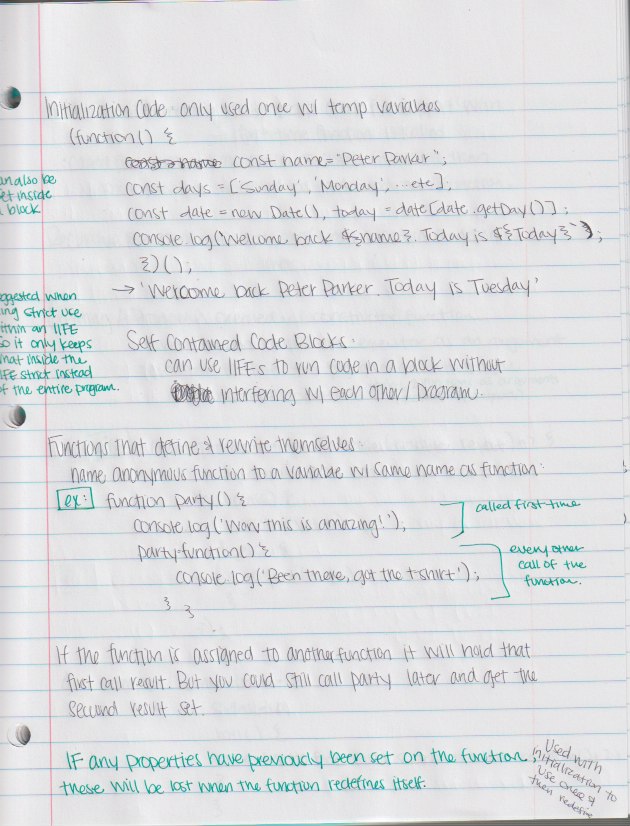 Initialization Code only used once w/ temp variables
(function() {
const name="Peter Parker";
an also be
et inside
a block
const days = ['Sunday', 'Monday', ...etc],
const date = new Date(), today = date[date.getDay()];
console.log('Welcome back ${name}. Today is ${Today}`);
})();
→ 'Welcome back Peter Parker. Today is Tuesday'
ggested when
ing strict use
ithin an IIFE
so it only keeps
hat inside the
IFE strict instead
of the entire program.
Self Contained Code Blocks:
can use IIFEs to run code in a block without
interfering w/ each other/program.
Functions that define & rewrite themselves:
name anonymous function to a variable w/ same name as function:
ex: function party() {
console.log('Wow this is amazing!'),
called first time
party=function() {
console.log('Been there, got the t-shirt');
} }
every other
call of the
function.
If the function is assigned to another function it will hold that
first call result. But you could still call party later and get the
second result set.
IF any properties have previously been set on the function,
these will be lost when the function redefines itself.
Used with
initialization to
use once &
then redefine